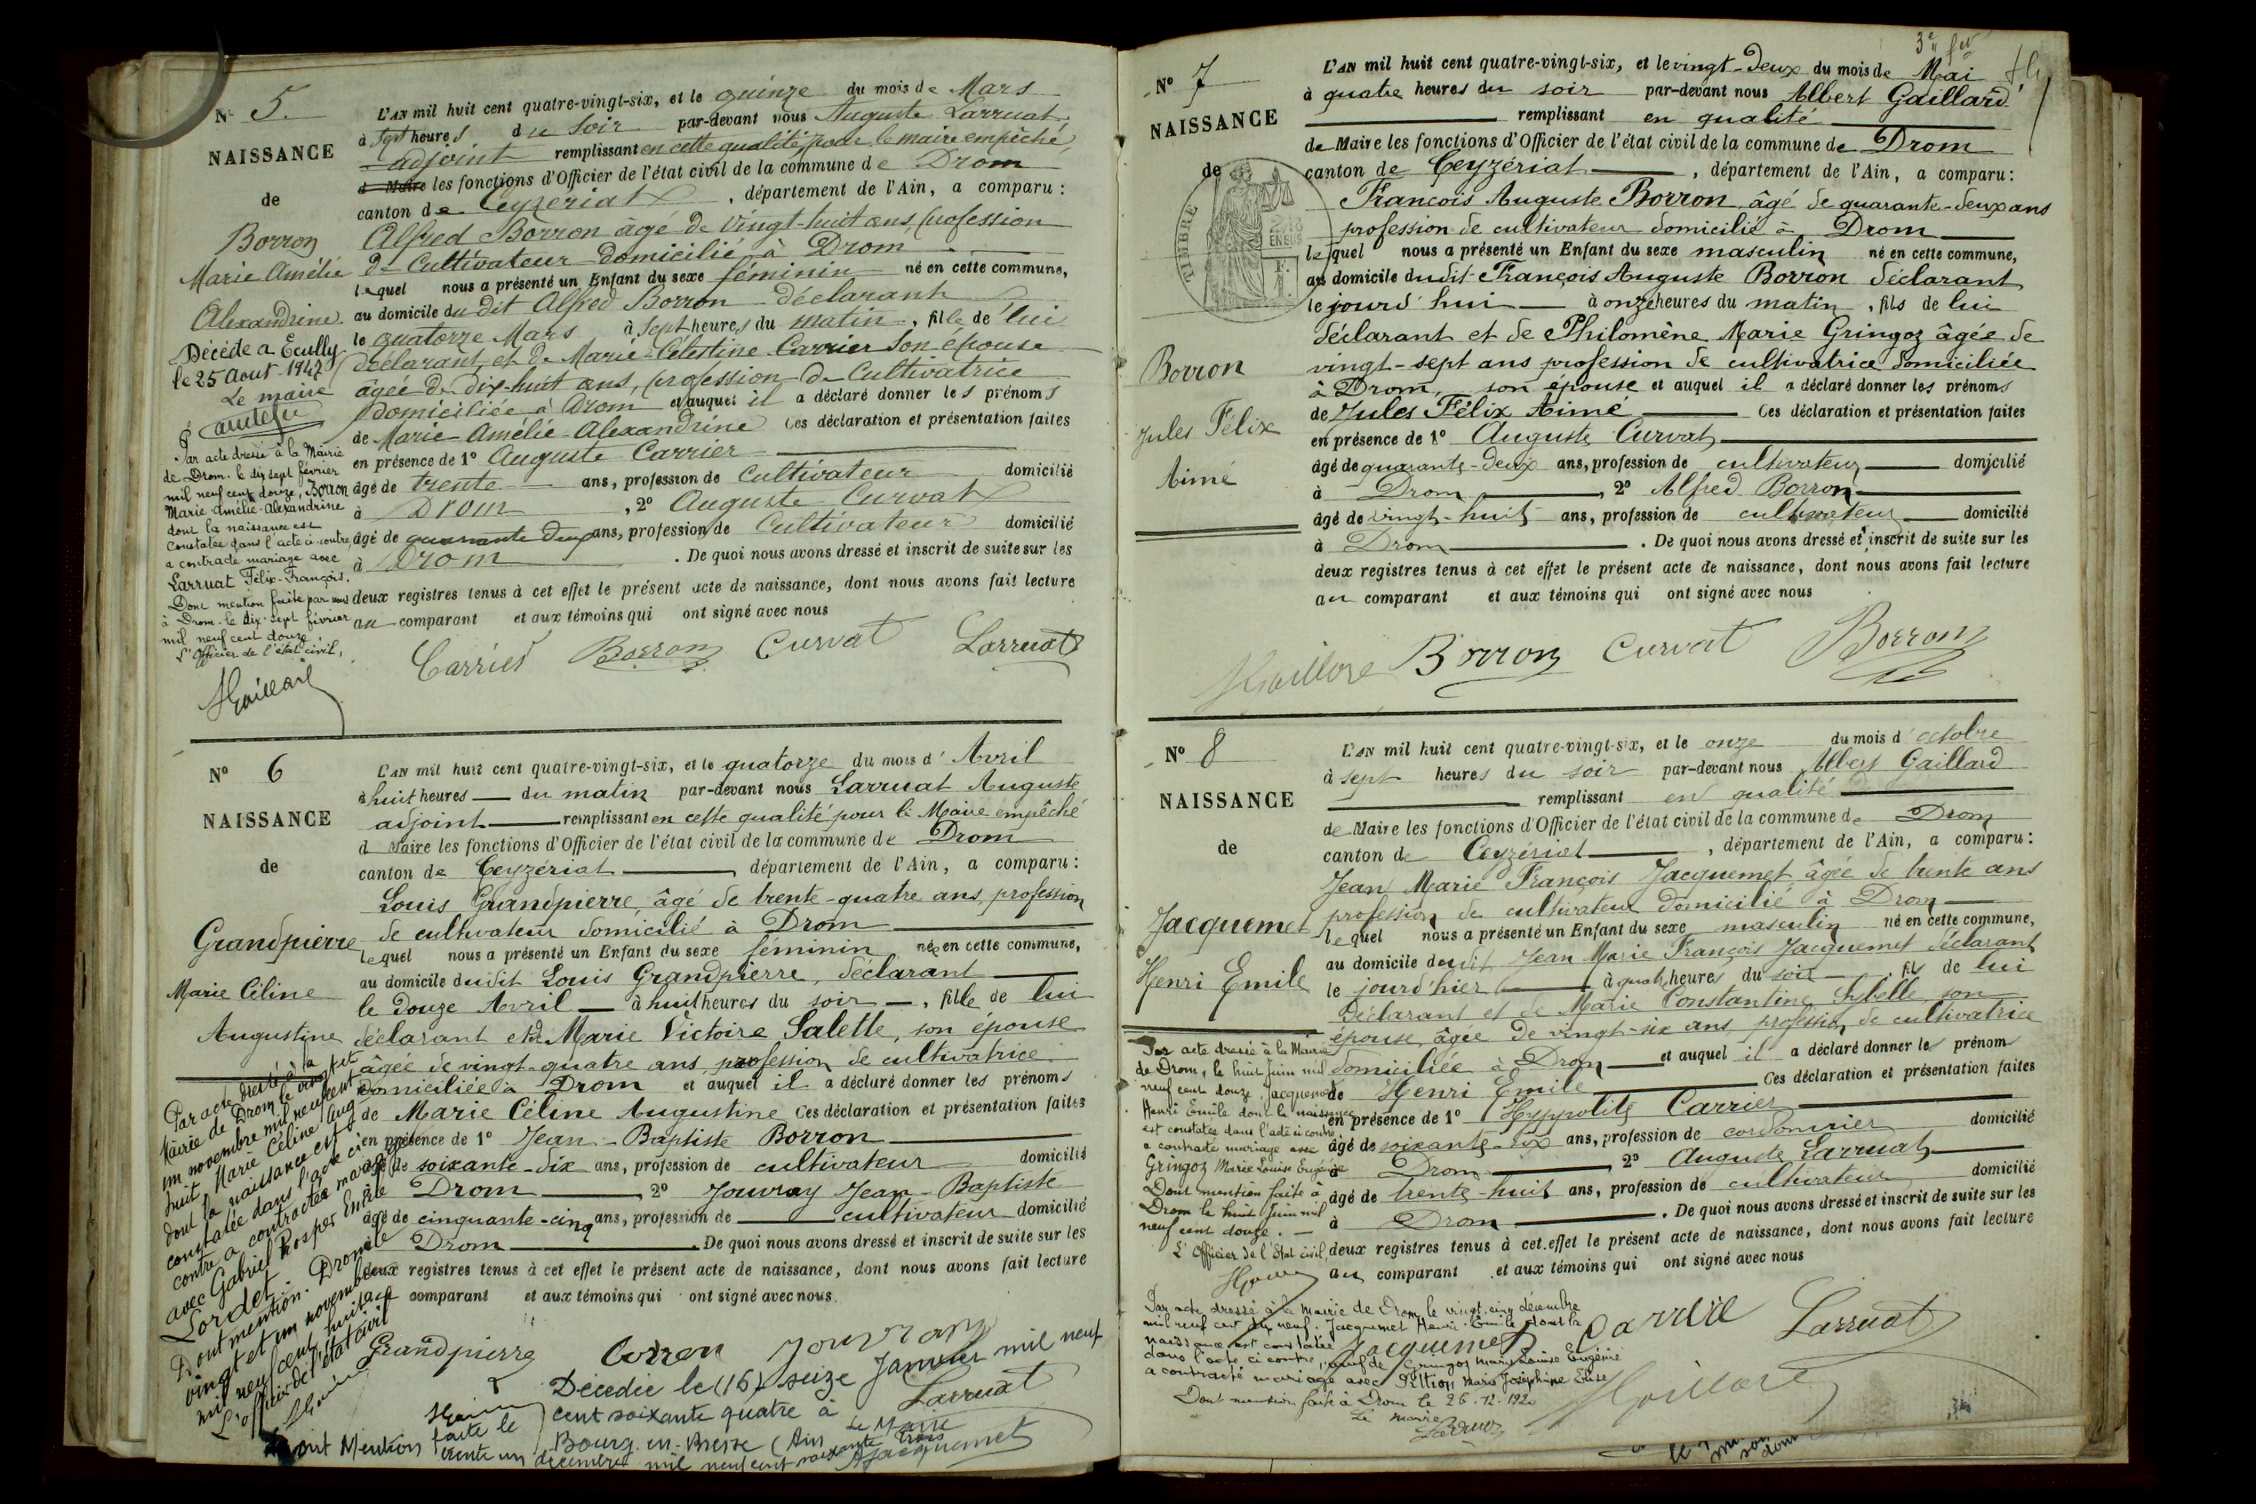 N° 5.
NAISSANCE
de
Borron
Marie Amélie
Alexandrine
Décédée a Ecully
le 25 Aout 1947
Le maire
Par acte dressé à la Mairie
de Drom, le dix sept février
mil neuf cent douze, Borron
Marie-Amélie-Alexandrine
dont la naissance est
constatée dans l'acte ci-contre,
a contracté mariage avec
Larruat Félix-François.
Dont mention faite par nous
à Drom, le dix-sept février
mil neuf cent douze,
L'Officier de l'état civil,
Gaillard
L'AN mil huit cent quatre-vingt-six, et le quinze du mois de Mars
à sept heures du soir par-devant nous Auguste Larruat
adjoint remplissant en cette qualité pour le maire empêché
d Maire les fonctions d'Officier de l'état civil de la commune de Drom
canton de Ceyzériat, département de l'Ain, a comparu :
Alfred Borron âgé de vingt-huit ans, profession
de Cultivateur domicilié à Drom
lequel nous a présenté un Enfant du sexe féminin né en cette commune,
au domicile dudit Alfred Borron déclarant
le quatorze Mars à sept heures du matin, fille de lui
déclarant, et de Marie-Célestine Carrier son épouse
âgée de dix-huit ans, profession de Cultivatrice
domiciliée à Drom et auquel il a déclaré donner les prénoms
de Marie-Amélie-Alexandrine Ces déclaration et présentation faites
en présence de 1° Auguste Carrier
âgé de trente ans, profession de Cultivateur domicilié
à Drom, 2° Auguste Curvat
âgé de quarante deux ans, profession de Cultivateur domicilié
à Drom. De quoi nous avons dressé et inscrit de suite sur les
deux registres tenus à cet effet le présent acte de naissance, dont nous avons fait lecture
au comparant et aux témoins qui ont signé avec nous
Carrier Borron Curvat Larruat
N° 6
NAISSANCE
de
Grandpierre
Marie Céline
Augustine
Par acte dressé à la
Mairie de Drom le vingt et
un novembre mil neuf cent
huit Marie Céline Aug
dont la naissance est
constatée dans l'acte ci-
contre a contracté mariage
avec Gabriel Prosper Emile
Lordet.
Dont mention. Drom le
vingt et un novembre
mil neuf cent huit
L'officier de l'état civil
L'AN mil huit cent quatre-vingt-six, et le quatorze du mois d'Avril
à huit heures du matin par-devant nous Larruat Auguste
adjoint remplissant en cette qualité pour le Maire empêché
d Maire les fonctions d'Officier de l'état civil de la commune de Drom
canton de Ceyzériat, département de l'Ain, a comparu :
Louis Grandpierre, âgé de trente-quatre ans, profession
de cultivateur domicilié à Drom
lequel nous a présenté un Enfant du sexe féminin née en cette commune,
au domicile dudit Louis Grandpierre, déclarant
le douze Avril à huit heures du soir, fille de lui
déclarant et de Marie Victoire Salette, son épouse
âgée de vingt-quatre ans, profession de cultivatrice
domiciliée à Drom et auquel il a déclaré donner les prénoms
de Marie Céline Augustine Ces déclaration et présentation faites
en présence de 1° Jean-Baptiste Borron
âgé de soixante-dix ans, profession de cultivateur domicilié
Drom 2° Jouvray Jean-Baptiste
âgé de cinquante-cinq ans, profession de cultivateur domicilié
Drom. De quoi nous avons dressé et inscrit de suite sur les
deux registres tenus à cet effet le présent acte de naissance, dont nous avons fait lecture
comparant et aux témoins qui ont signé avec nous.
Grandpierre Borron Jouvray
Larruat
Décédée le (16) seize Janvier mil neuf
cent soixante quatre à
Bourg-en-Bresse (Ain
Le Maire
Dont Mention faite le
trente un décembre mil neuf cent soixante
AJacquemet
N° 7
NAISSANCE
de
TIMBRE
Borron
Jules Félix
Aimé
3e
L'AN mil huit cent quatre-vingt-six, et le vingt-deux du mois de Mai
à quatre heures du soir par-devant nous Albert Gaillard
remplissant en qualité
de Maire les fonctions d'Officier de l'état civil de la commune de Drom
canton de Ceyzériat, département de l'Ain, a comparu :
François Auguste Borron, âgé de quarante-deux ans
profession de cultivateur domicilié à Drom
lequel nous a présenté un Enfant du sexe masculin né en cette commune,
au domicile dudit François Auguste Borron déclarant
le jourd'hui à onze heures du matin, fils de lui
déclarant et de Philomène Marie Gringoz âgée de
vingt-sept ans profession de cultivatrice domiciliée
à Drom, son épouse et auquel il a déclaré donner les prénoms
de Jules Félix Aimé Ces déclaration et présentation faites
en présence de 1° Auguste Curvat
âgé de quarante-deux ans, profession de cultivateur domicilié
à Drom, 2° Alfred Borron
âgé de vingt-huit ans, profession de cultivateur domicilié
à Drom. De quoi nous avons dressé et inscrit de suite sur les
deux registres tenus à cet effet le présent acte de naissance, dont nous avons fait lecture
au comparant et aux témoins qui ont signé avec nous
Gaillard Borron Curvat Borron
N° 8
NAISSANCE
de
Jacquemet
Henri Emile
Par acte dressé à la Mairie
de Drom, le huit Juin mil
neuf cent douze, Jacquemet
Henri Emile dont la naissance
est constatée dans l'acte ci contre
a contracté mariage avec
Gringoz Marie Louise Eugénie
Dont mention faite à
Drom le huit Juin mil
neuf cent douze.
L'Officier de l'Etat civil,
L'AN mil huit cent quatre-vingt-six, et le onze du mois d'octobre
à sept heures du soir par-devant nous Albert Gaillard
remplissant en qualité
de Maire les fonctions d'Officier de l'état civil de la commune de Drom
canton de Ceyzériat, département de l'Ain, a comparu :
Jean Marie François Jacquemet, âgée de trente ans
profession de cultivateur domicilié à Drom
lequel nous a présenté un Enfant du sexe masculin né en cette commune,
au domicile dudit Jean Marie François Jacquemet déclarant
le jourd'hier à quatre heures du soir, fils de lui
Déclarant et de Marie Constantine Sybelle, son
épouse, âgée de vingt-six ans, profession de cultivatrice
domiciliée à Drom et auquel il a déclaré donner les prénom
de Henri Emile Ces déclaration et présentation faites
en présence de 1° Hyppolite Carrier
âgé de soixante-six ans, profession de cordonnier domicilié
à Drom 2° Auguste Larruat
âgé de trente-huit ans, profession de cultivateur domicilié
à Drom. De quoi nous avons dressé et inscrit de suite sur les
deux registres tenus à cet effet le présent acte de naissance, dont nous avons fait lecture
au comparant et aux témoins qui ont signé avec nous
Jacquemet Carrier Larruat
Gaillard
Par acte dressé à la mairie de Drom, le vingt cinq décembre
mil neuf cent dix neuf, Jacquemet Henri-Emile dont la
naissance est constatée
dans l'acte ci contre, veuf de Gringoz Marie Louise Eugénie
a contracté mariage avec Marie Joséphine Elise
Dont mention faite à Drom le 26-12-192
Le maire
Larruat